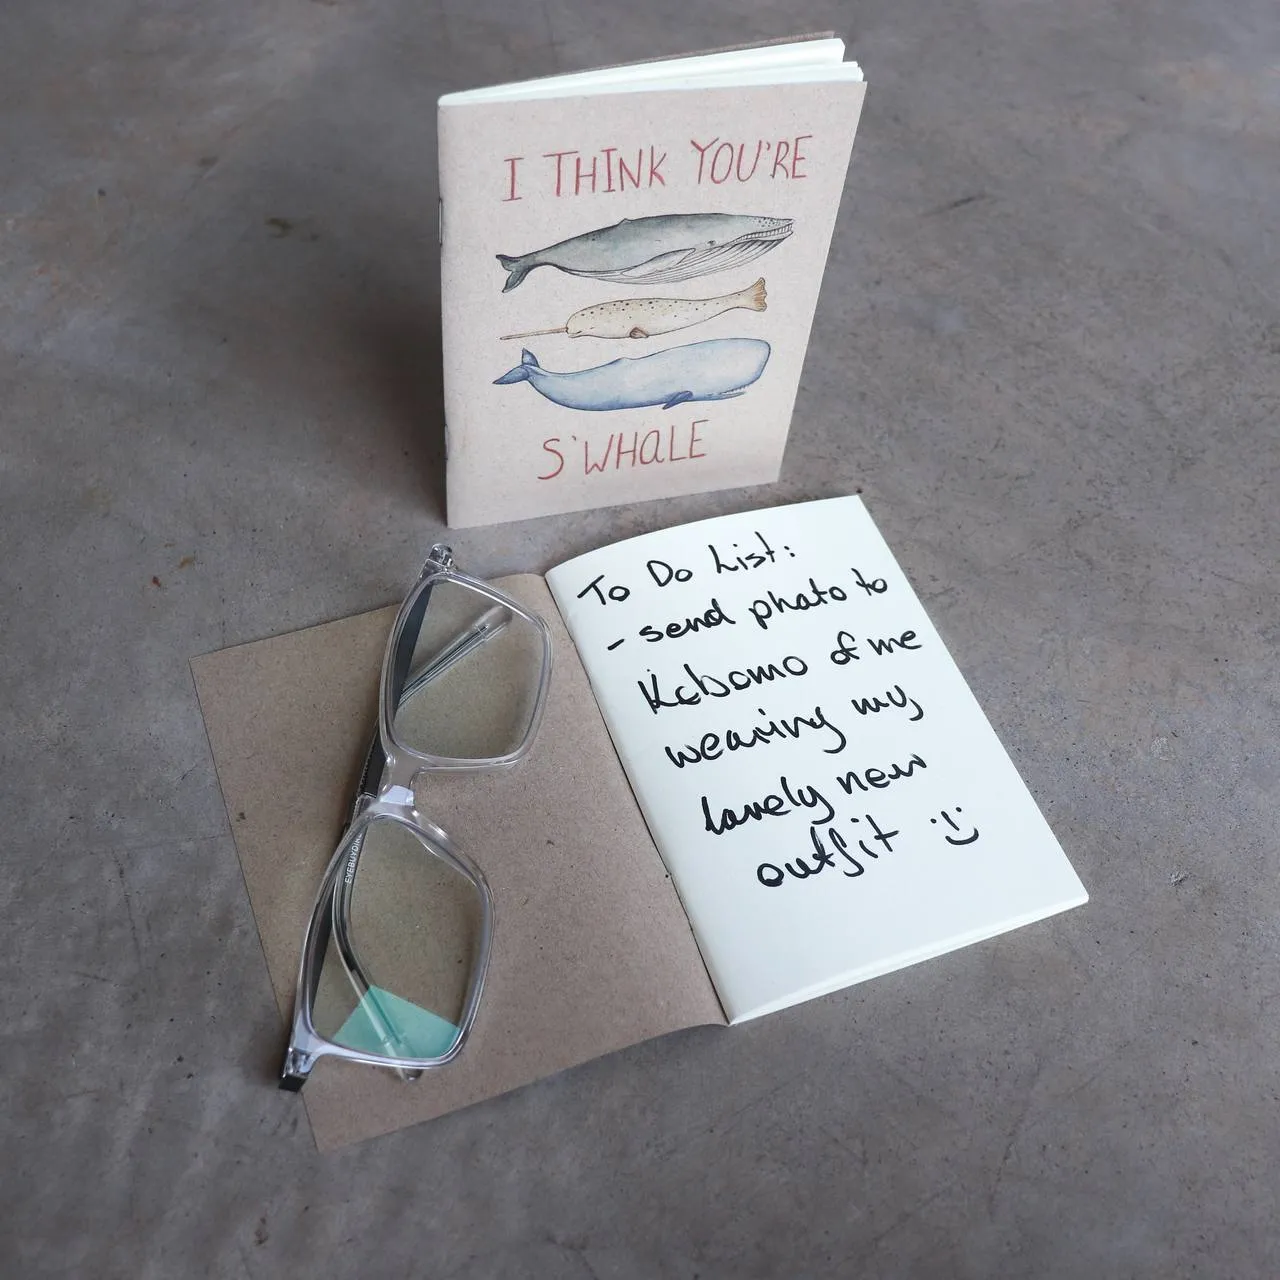 I THINK YOU'RE
S'WHALE
To Do List:
- send photo to
Kabomo of me
wearing my
lovely new
outfit :)